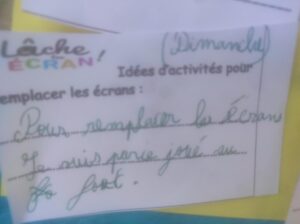 Lâche ton ÉCRAN!
(Dimanche)
Idées d'activités pour
emplacer les écrans :
Pour remplacer les écrans
Je suis parie joué au
foot.